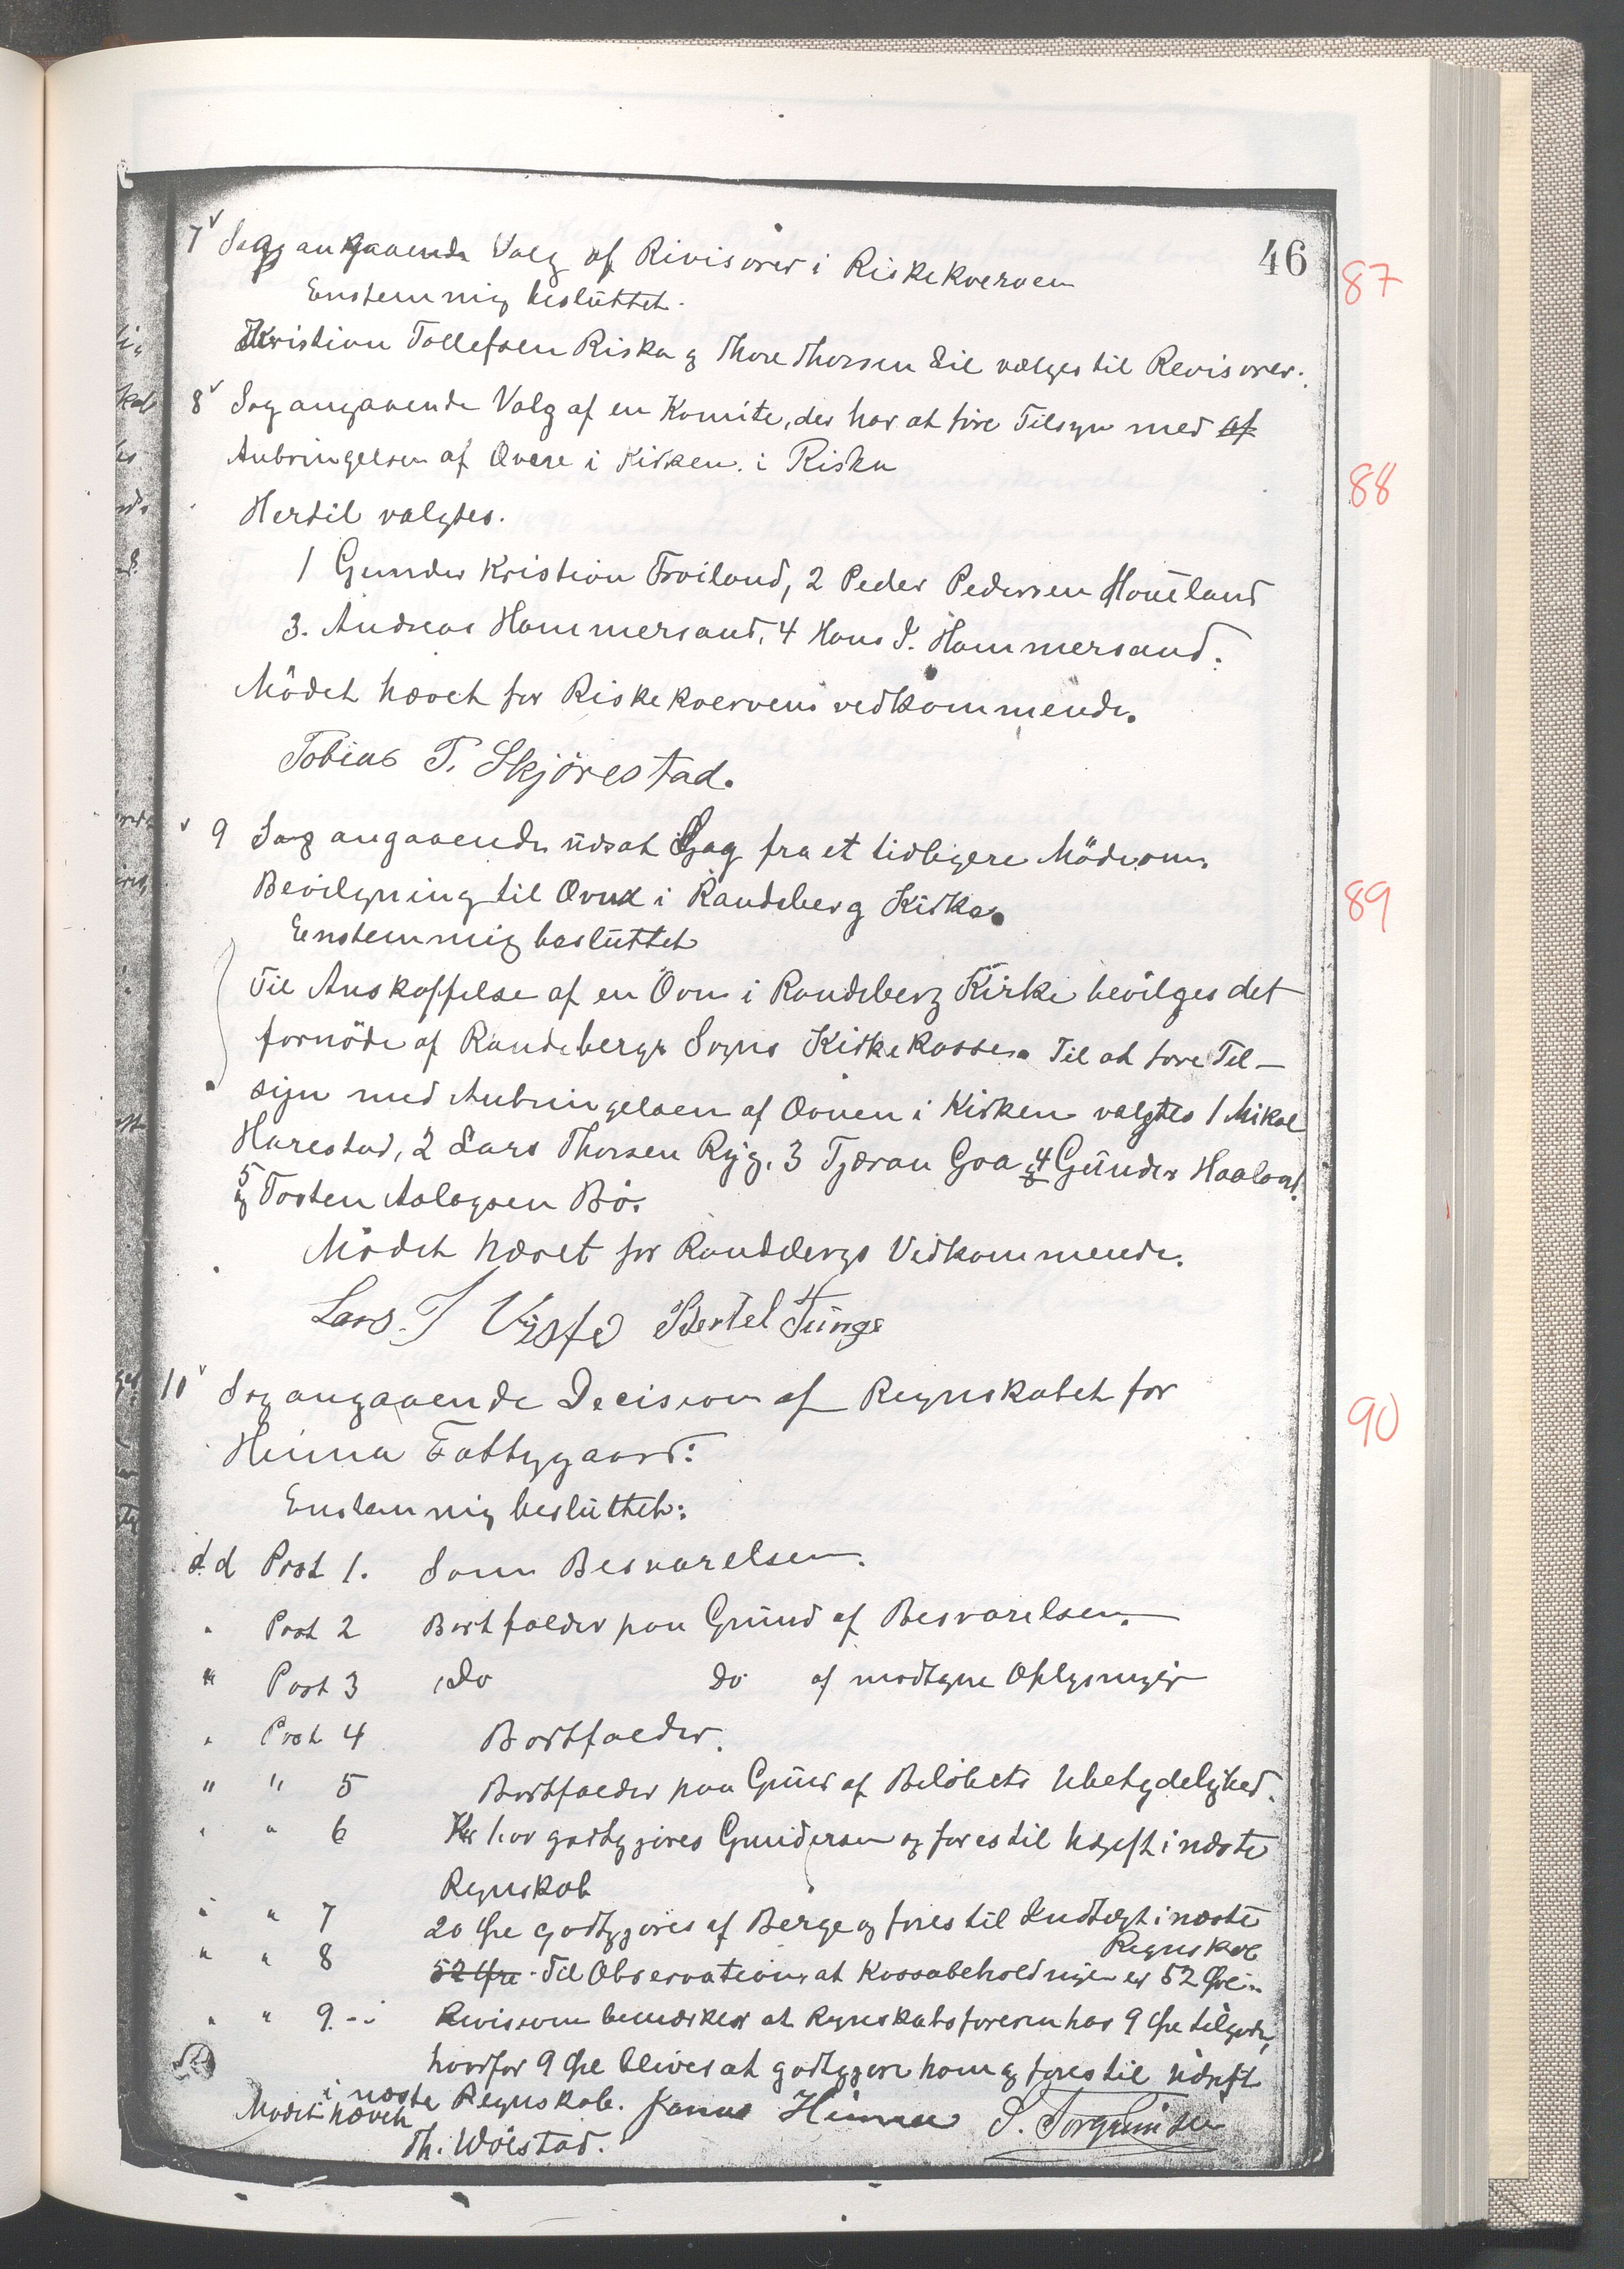 46
7 Sag angaaende Valg af Rivisorer i Riskekverven
87
Enstemmig beslüttet.
Kristian Tollefsen Riska og Thore Thorsen Lil vælges til Revisorer.
8 Sag angaaende Valg af en Komite, der har at före Tilsyn med af
Anbringelsen af Overe i Kirken i Riska
88
Hertil valgtes.
1 Gunder Kristian Froiland, 2 Peder Pedersen Houeland
3. Andreas Hammersand, 4 Hans I. Hammersand.
Mödet hævet for Riskekvervens vedkommende.
Tobias T. Skjörestad.
9 Sag angaaende udsat Sag fra et tidligere Möde om
Bevilgning til Ovne i Randeberg Kirke.
89
Enstemmig beslüttet
Til Anskaffelse af en Ovn i Randeberg Kirke bevilges det
fornöde af Randebergs Sogns Kirkekasse. Til at före Til-
syn med Anbringelsen af Ovnen i Kirken valgtes 1 Mikal
Harestad, 2 Lars Thorsen Ryg, 3 Tjæran Goa og 4 Günder Haaland
og 5 Tosten Aslagsen Bö.
Mödet hævet for Randebergs Vedkommende.
Lars. T Viste Bertel Tünge
10 Sag angaaende Decision af Regnskabet for
90
Hinna Fattiggaard:
Enstemmig beslüttet:
Ad Post 1. Som Besvarelsen.
" Post 2 Bortfalder paa Grund af Besvarelsen.
" Post 3 Do Do af modtagne Oplysninger
" Post 4 Bortfalder.
" " 5 Bortfalder paa Grund af Belöbets Ubetydelighed.
" " 6 Kr 1.00 godtgjöres Gundersen og föres til Udgift i næste
Regnskab
" " 7 20 Öre godtgjöres af Berge og föres til Indtægt i næste
Regnskab
" " 8 52 Öre Til Observation, at Kassabeholdningen er 52 Öre
" " 9 Revisionen bemærker at Regnskabsföreren har 9 Öre tilgode,
hvorfor 9 Öre bliver at godtgjöre ham og föres til Udgift
i næste Regnskab. Jonas Hinna S. Torgeirsen
Mödet hævet
Th. Wölstad.